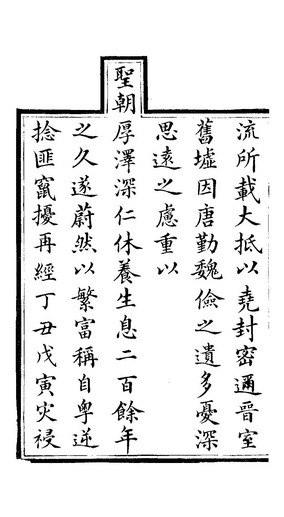 流所載大抵以堯封密邇晉室
舊墟因唐勤魏儉之遺多憂深
思遠之慮重以
聖朝厚澤深仁休養生息二百餘年
之久遂蔚然以繁富稱自粤逆
捻匪竄擾再經丁丑戊寅灾祲